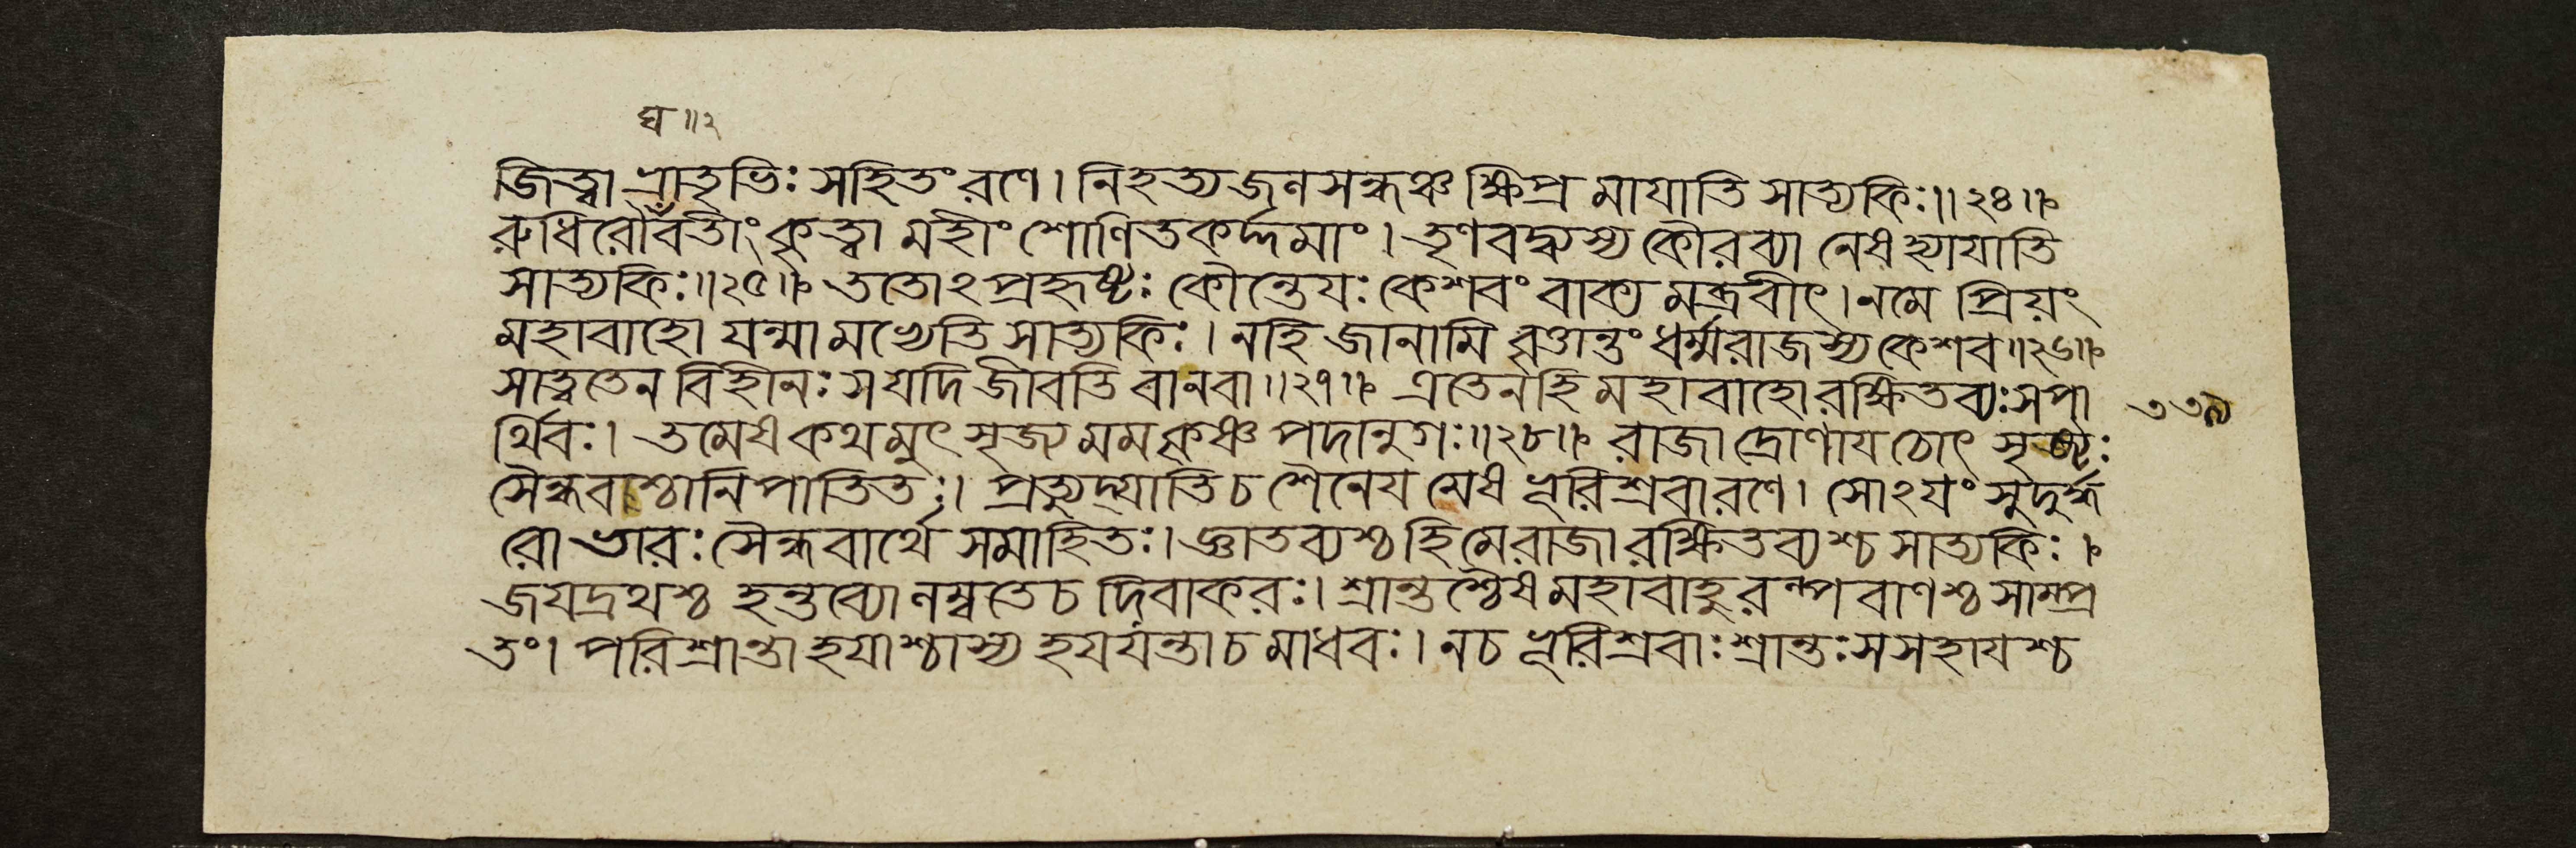 ঘ ॥ ২
জিত্বা ভ্রাতৃভিঃ সহিতং রণে । নিহত্য জনসন্ধঞ্চ ক্ষিপ্র মাযাতি সাত্যকিঃ ॥ ২৪ ॥
রুধিরৌঘবতীং কৃত্বা মহীং শোণিতকর্দ্দমাং । তৃণবদ্ব্যস্য কৌরব্যা নেষহ্যাযাতি
সাত্যকিঃ ॥ ২৫ ॥ ততোঽপ্রহৃষ্টঃ কৌন্তেযঃ কেশবং বাক্য মব্রবীৎ । নমে প্রিয়ং
মহাবাহো যন্মামভ্যেতি সাত্যকিঃ । নহি জানামি বৃত্তান্তং ধর্ম্মরাজস্য কেশব ॥ ২৬ ॥
সাত্বতেন বিহীনঃ সযদি জীবতি বানবা ॥ ২৭ ॥ এতেনহি মহাবাহো রক্ষিতব্যঃ সপা
র্থিবঃ । তমেষ কথমুৎসৃজ্য মমকৃষ্ণ পদানুগঃ ॥ ২৮ ॥ রাজা দ্রোণায চোৎসৃষ্টঃ
সৈন্ধবশ্চানিপাতিতঃ । প্রত্যুদ্যাতিচ শৈনেয মেষ ভূরিশ্রবারণে । সোঽযং সুদুর্দ্ধ
রো ভারঃ সৈন্ধবার্থে সমাহিতঃ । জ্ঞাতব্যশ্চ হিমে রাজা রক্ষিতব্যশ্চ সাত্যকিঃ ।
জযদ্রথশ্চ হন্তব্যো নম্বতেচ দিবাকরঃ । শ্রান্তশ্চৈষ মহাবাহু রল্পবাণশ্চ সাম্প্র
তং । পরিশ্রান্তা হযাশ্চাস্য হযযন্তাচ মাধবঃ । নচ ভূরিশ্রবাঃ শ্রান্তঃ সসহাযশ্চ